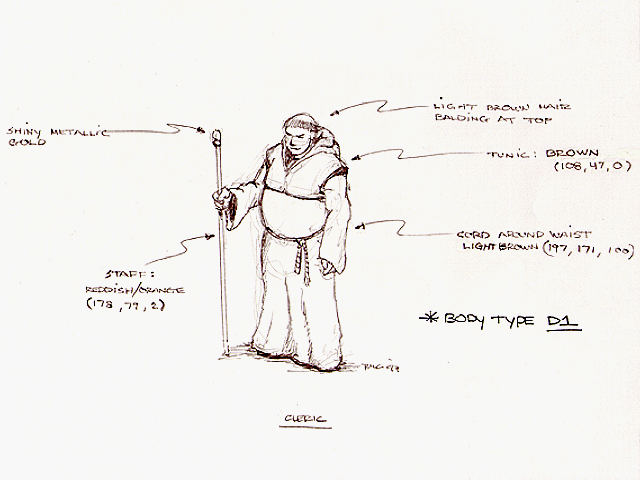 LIGHT BROWN HAIR
BALDING AT TOP
SHINY METALLIC
GOLD
TUNIC: BROWN
(108, 47, 0)
CORD AROUND WAIST
LIGHT BROWN (197, 171, 100)
STAFF:
REDDISH/ORANGE
(178, 79, 2)
* BODY TYPE D1
CLERIC